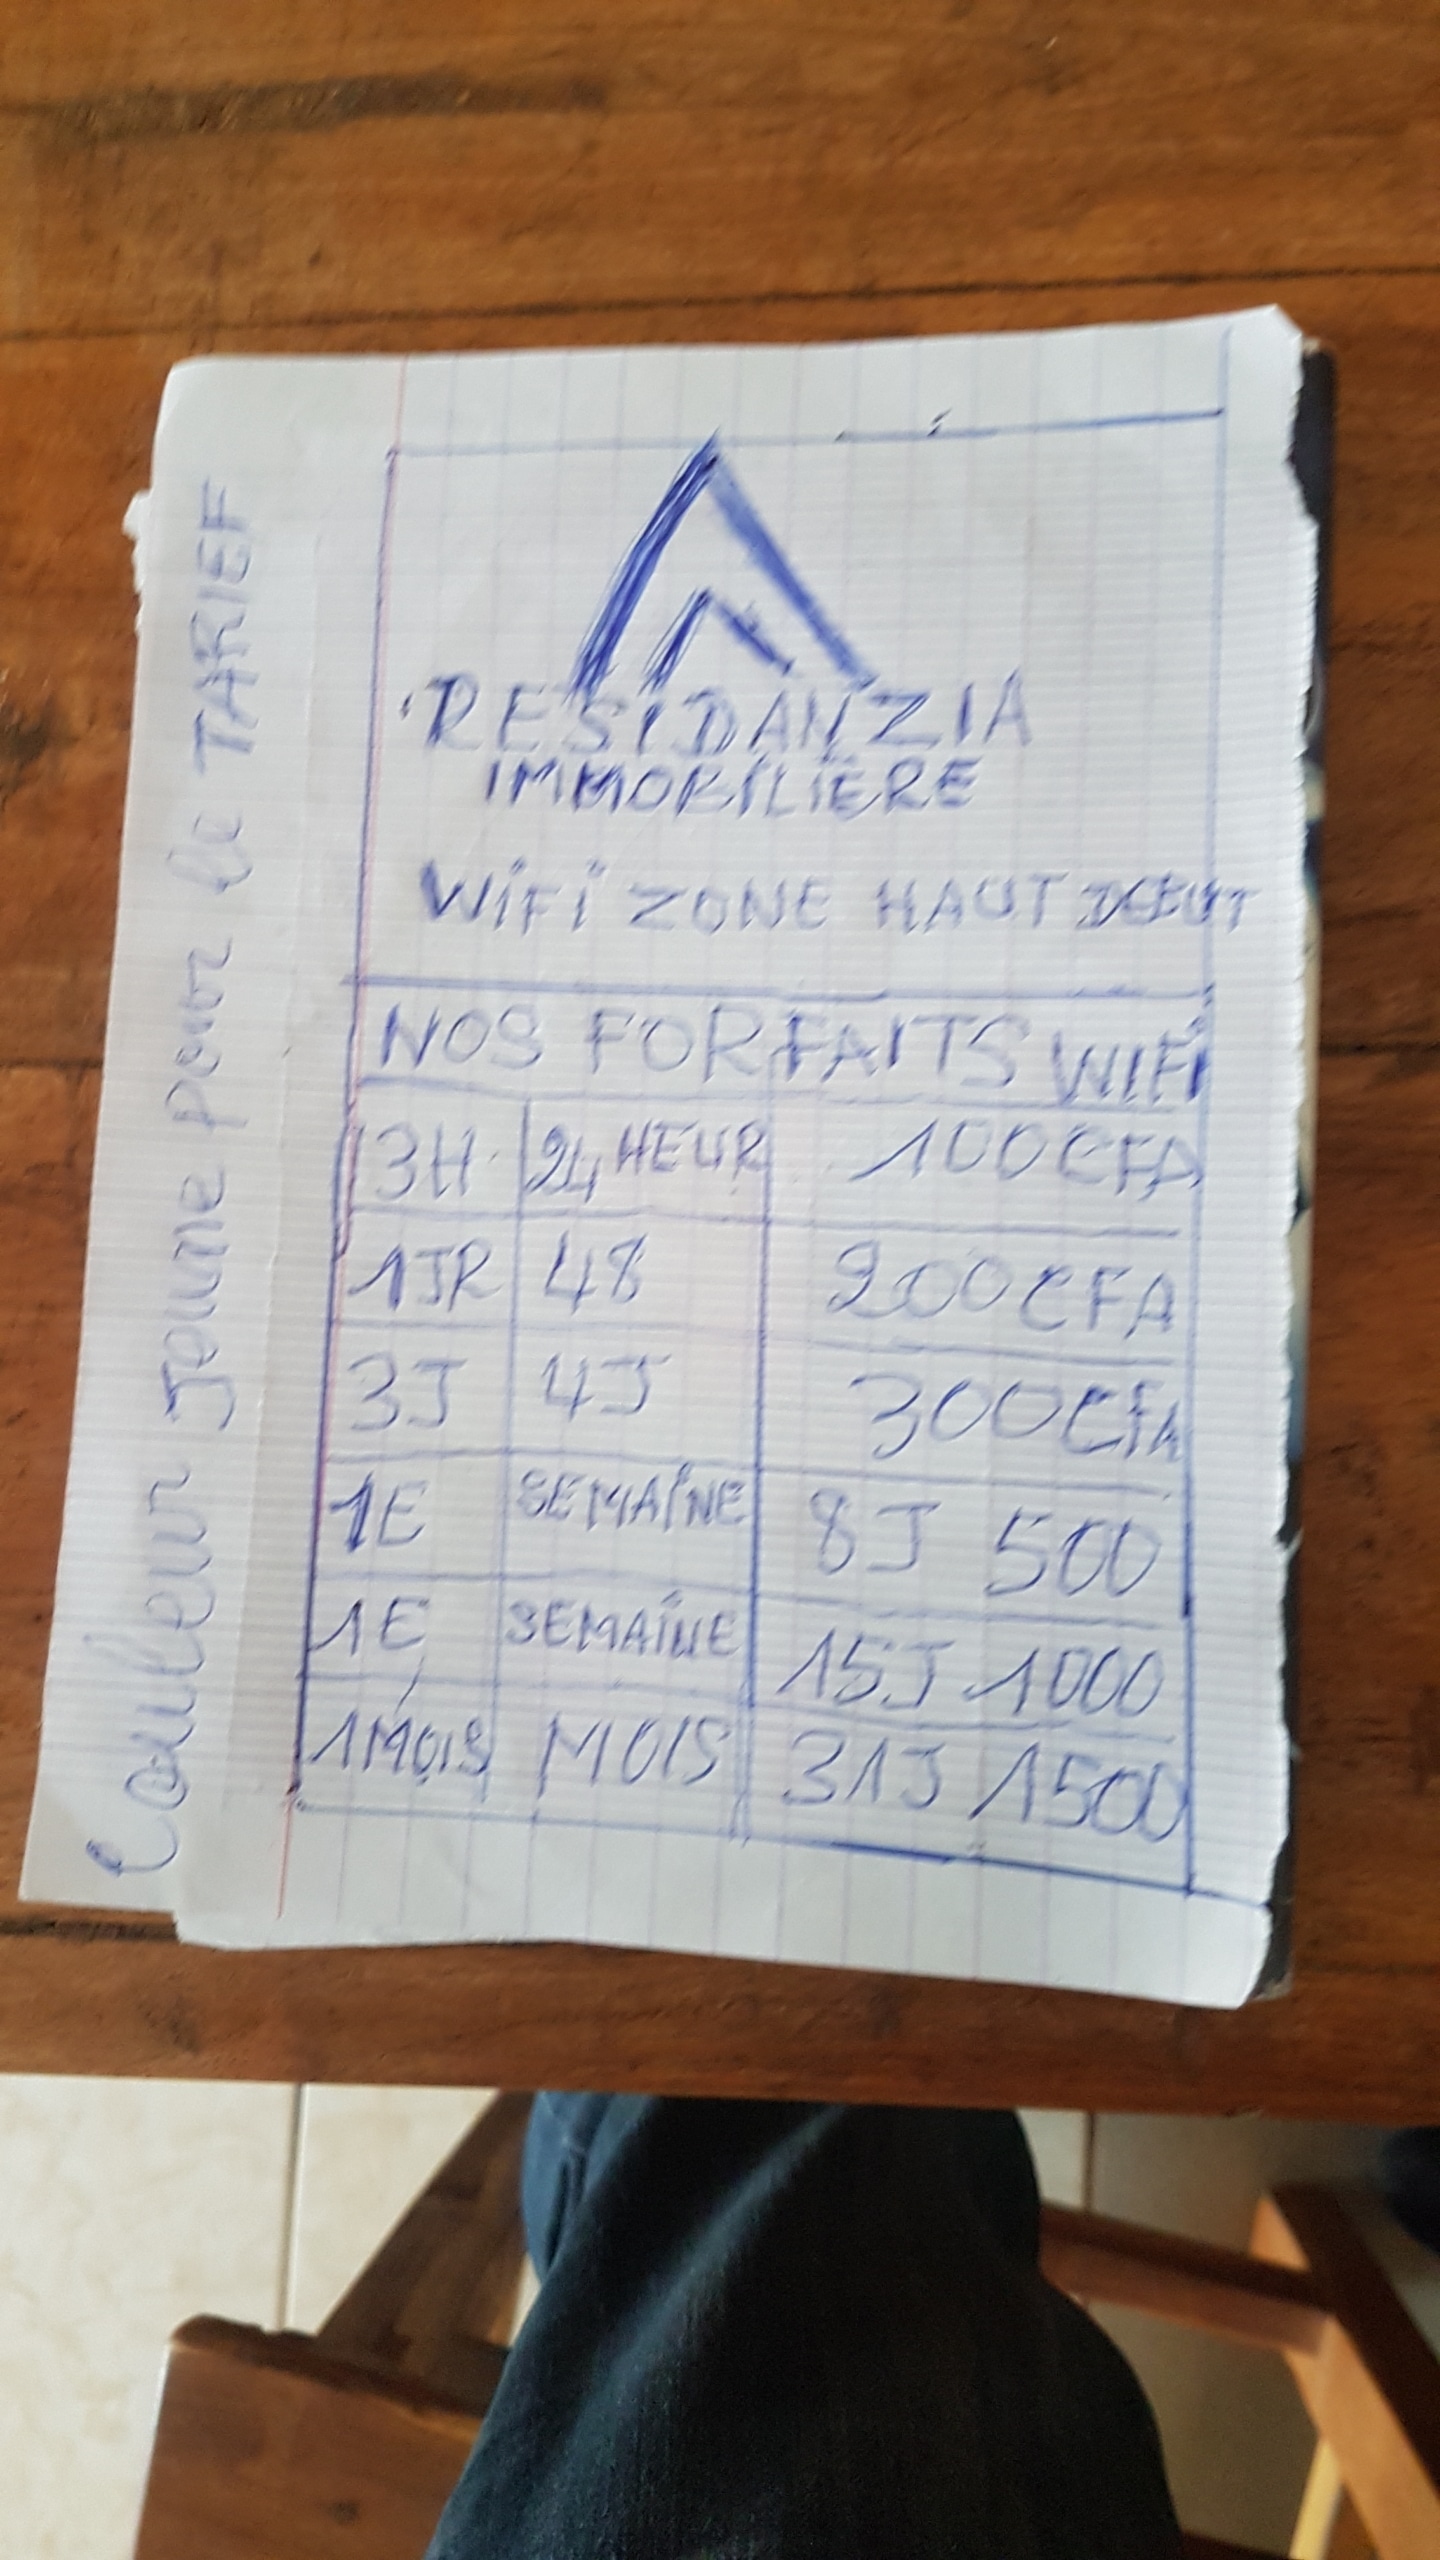 RESIDANZIA
IMMOBILIÈRE
WIFI ZONE HAUT DEBUT
NOS FORFAITS WIFI
3H 24 HEUR 100CFA
1JR 48 200CFA
3J 4J 300CFA
1E SEMAINE 8J 500
1E SEMAINE 15J 1000
1MOIS MOIS 31J 1500
Couleur Jaune pour le TARIEF